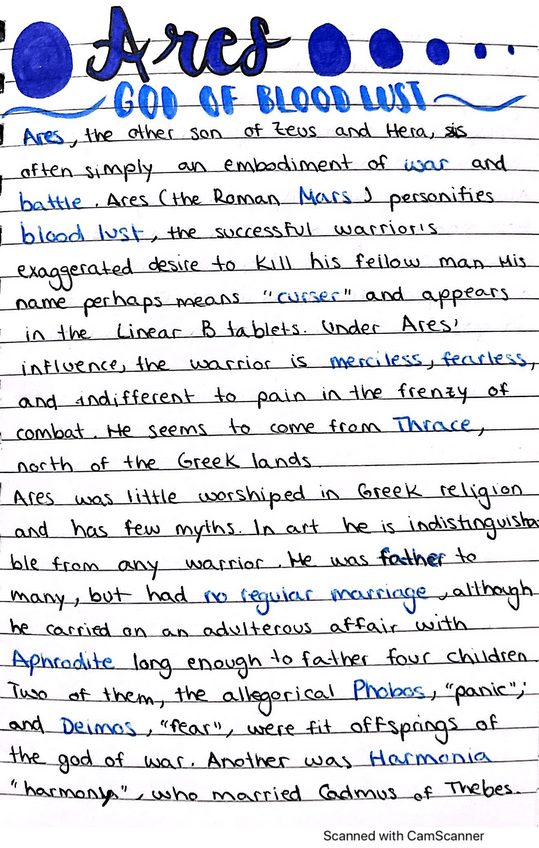 Ares
GOD OF BLOOD LUST
Ares, the other son of Zeus and Hera, is
often simply an embodiment of war and
battle. Ares (the Roman Mars) personifies
blood lust, the successful warrior's
exaggerated desire to kill his fellow man. His
name perhaps means "curser" and appears
in the Linear B tablets. Under Ares'
influence, the warrior is merciless, fearless,
and indifferent to pain in the frenzy of
combat. He seems to come from Thrace,
north of the Greek lands
Ares was little worshiped in Greek religion
and has few myths. In art he is indistinguisha
ble from any warrior. He was father to
many, but had no regular marriage, although
he carried on an adulterous affair with
Aphrodite long enough to father four children.
Two of them, the allegorical Phobos, "panic";
and Deimos, "fear", were fit offsprings of
the god of war. Another was Harmonia
"harmony", who married Cadmus of Thebes.
Scanned with CamScanner